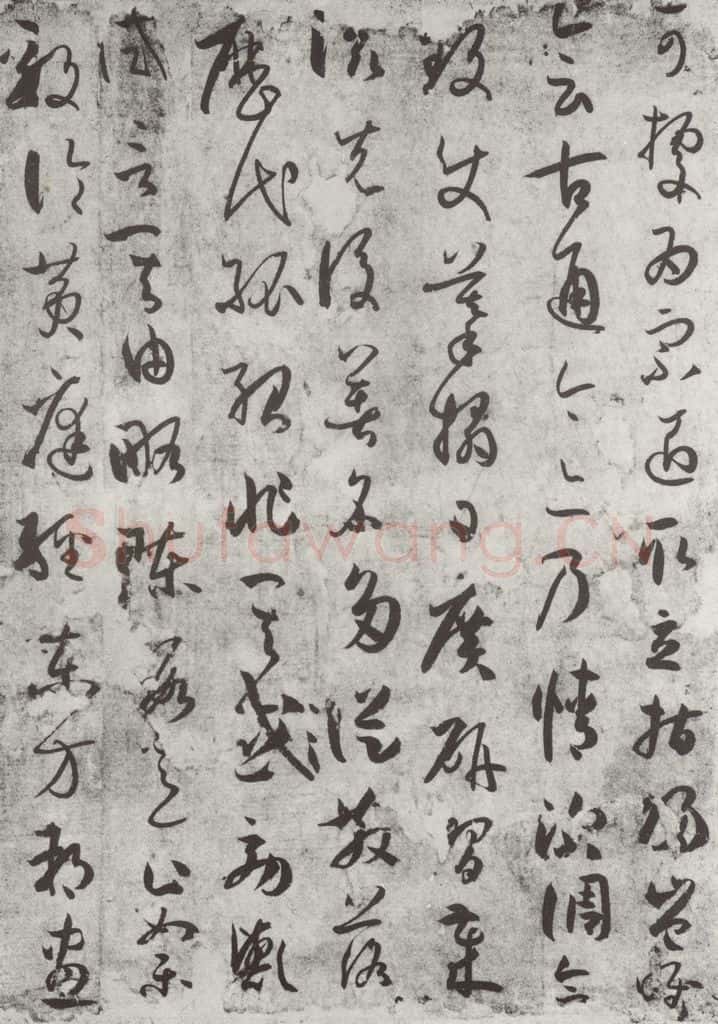 可據為宗匠取立指歸豈唯
會古通今亦乃情深調合
致使摹搨日廣研習歲
滋先後著名多從散落
歷代孤紹非其効與
試言其由略陳數意止如樂
毅論黃庭經東方朔畫
Shufawang.CN